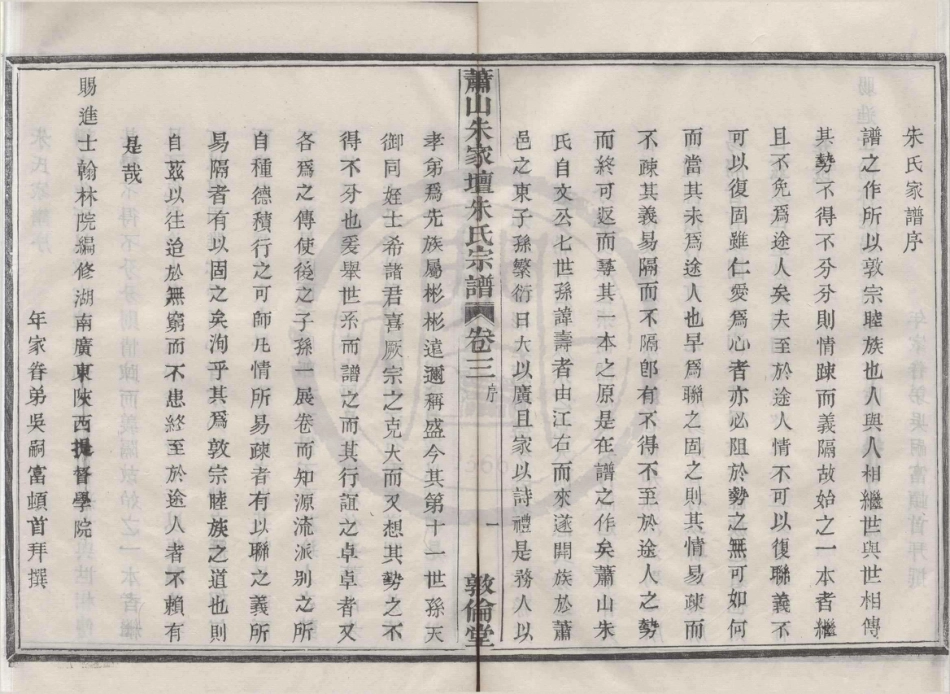 朱氏家譜序
譜之作所以敦宗睦族也人與人相繼世與世相傳
其勢不得不分分則情踈而義隔故始之一本者繼
且不免爲途人矣夫至於途人情不可以復聯義不
可以復固雖仁愛爲心者亦必阻於勢之無可如何
而當其未爲途人也早爲聯之固之則其情易而
不疎其義易隔而不隔卽有不得不至於途人之勢
而終可返而尋其一本之原是在譜之作矣蕭山朱
氏自文公七世孫諱壽者由江右而來遂開族於蕭
邑之東子孫繁衍日大以廣且家以詩禮是務人以
蕭山朱家壇朱氏宗譜 卷三 序 一 敦倫堂
孝弟爲先族屬彬彬遠邇稱盛今其第十一世孫天
御同姪士希諸君喜厥宗之克大而又想其勢之不
得不分也爰舉世系而譜之而其行誼之卓卓者又
各爲之傳使後之子孫一展卷而知源流派别之所
自種德積行之可師凡情所易疎者有以聯之義所
易隔者有以固之矣洵乎其爲敦宗睦族之道也則
自茲以往迨於無窮而不患終至於途人者不賴有
是哉
賜進士翰林院編修湖南廣東陝西提督學院
年家眷弟吳嗣富頓首拜撰